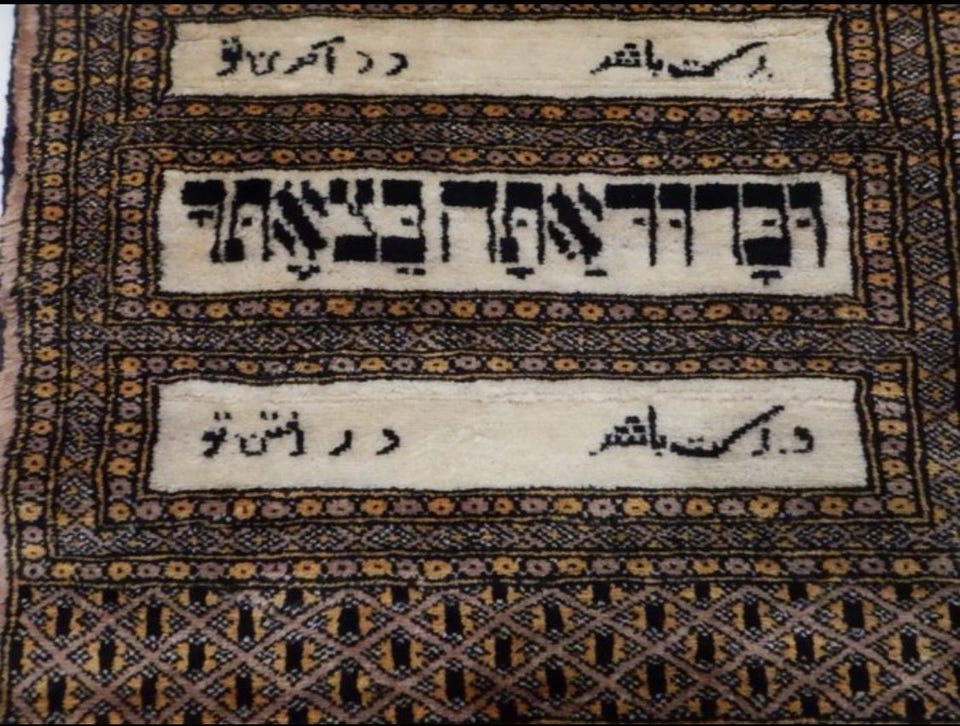 برکت باشد در آمدن تو
וּבָּרוּך אַתָּה בֵּצאָתּךּ
و برکت باشد در رفتن تو